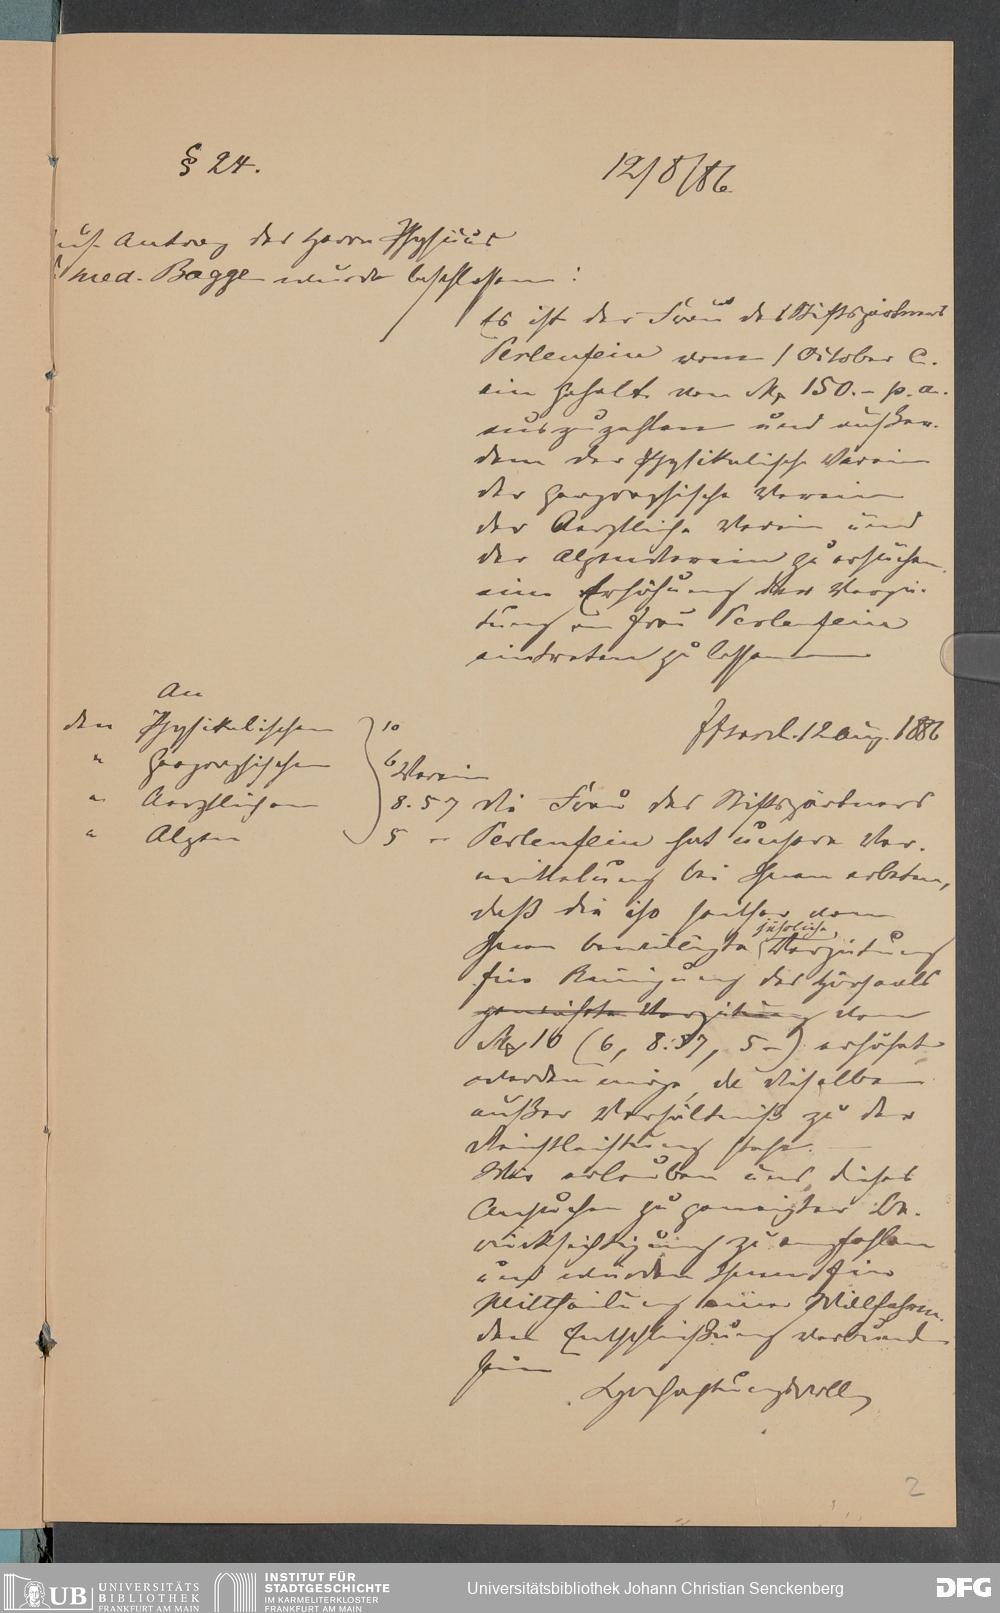 § 24.
12/8/86.
Auf Antrag des Herrn Physicus
Dr med. Bagge wurde beschlossen:
Es ist der Frau des Stiftsgärtners
Perlenfein vom 1 October c.
ein Gehalt von Mk 150.- p. a.
auszuzahlen und außer-
dem der Physikalische Verein
der Geographische Verein
der Aerztliche Verein und
der Alpenverein zu ersuchen
eine Erhöhung der Vergü-
tung an Frau Perlenfein
eintreten zu lassen
An
den Physikalischen
" Geographischen
" Aerztlichen
" Alpen
10
6 Verein
8.57
5 -
12 Aug. 1886
Die Frau des Stiftsgärtners
Perlenfein hat unsere Ver-
mittelung bei Ihnen erbeten,
daß die ihr seither von
Ihnen bewilligte jährliche Vergütung
für Reinigung des Hörsaals
gewährte Vergütung von
Mk 10 (6, 8.57, 5-) erhöht
werden möge, da dieselbe
außer Verhältniß zu der
Dienstleistung stehe.
Wir erlauben uns, dieses
Ansuchen zu geneigter Be-
rücksichtigung zu empfehlen
und würden Ihnen für
Mittheilung einer Willfahren-
den Entschließung verbunden
sein
Hochachtungsvoll
2
UB UNIVERSITÄTS
BIBLIOTHEK
FRANKFURT AM MAIN
INSTITUT FÜR
STADTGESCHICHTE
IM KARMELITERKLOSTER
FRANKFURT AM MAIN
Universitätsbibliothek Johann Christian Senckenberg
DFG